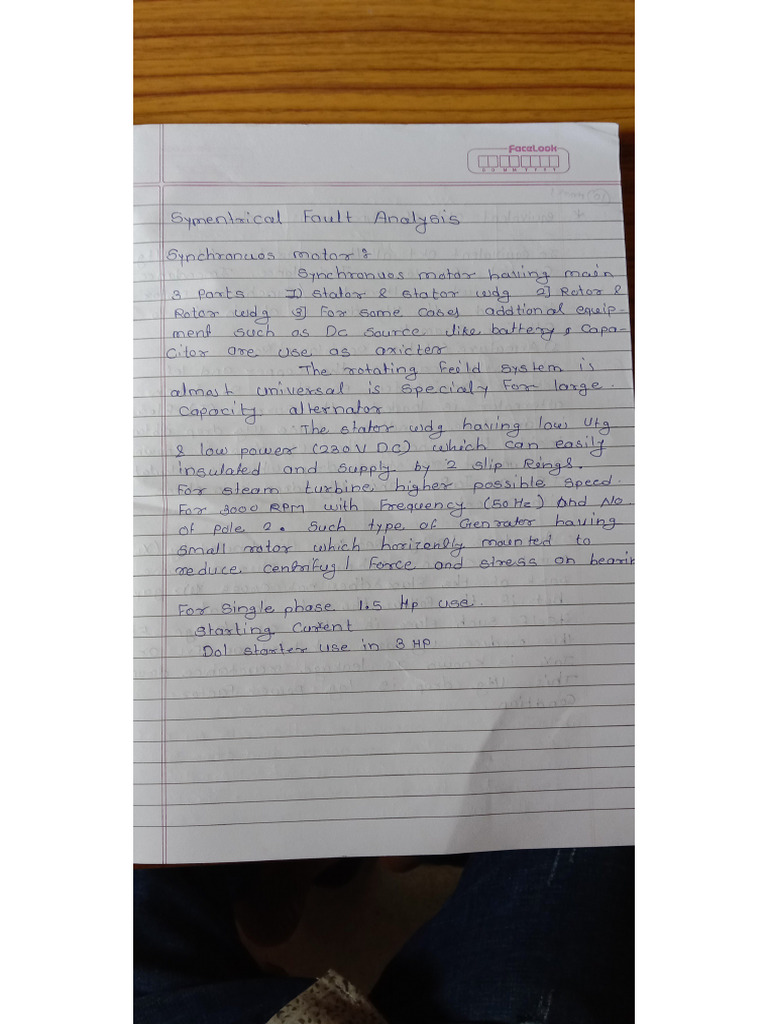 FaceLook
D D M M Y Y Y Y
Symentrical Fault Analysis
Synchronuos motor :
Synchronuos motor having main
3 Parts 1) Stator & stator wdg 2] Rotor &
Rotor wdg 3] For some cases addtional equip-
ment such as Dc source like battery & Capa-
citor are use as
The rotating feeild system is
almost universal is specialy for large.
Capacity alternator
The stator wdg having low vtg
& low power (230 V DC) which can easily
insulated and supply by 2 slip Rings.
For steam turbine higher possible speed.
For 3000 RPM with Frequency (50 Hz) and No.
of pole 2. Such type of Genrator having
small rotor which horizenlly mounted to
reduce centrifugl force and stress on bearin
For Single phase 1.5 Hp use.
Starting Current
Dol starter use in 3 HP